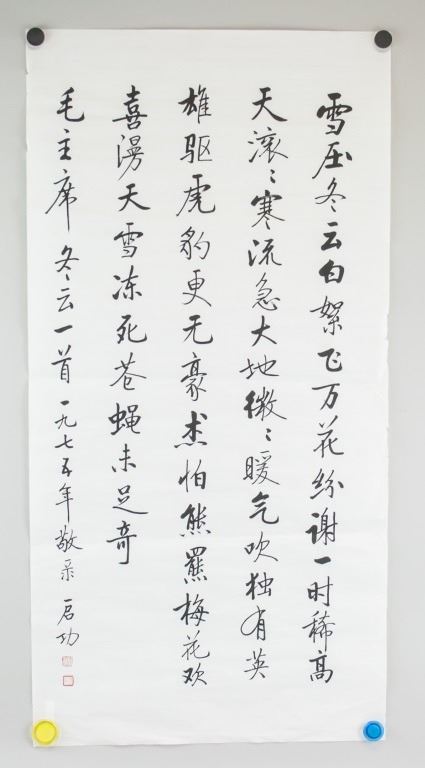 雪压冬云白絮飞万花纷谢一时稀高
天滚々寒流急大地微々暖气吹独有英
雄驱虎豹更无豪杰怕熊罴梅花欢
喜漫天雪冻死苍蝇未足奇
毛主席冬云一首一九七五年敬录 启功